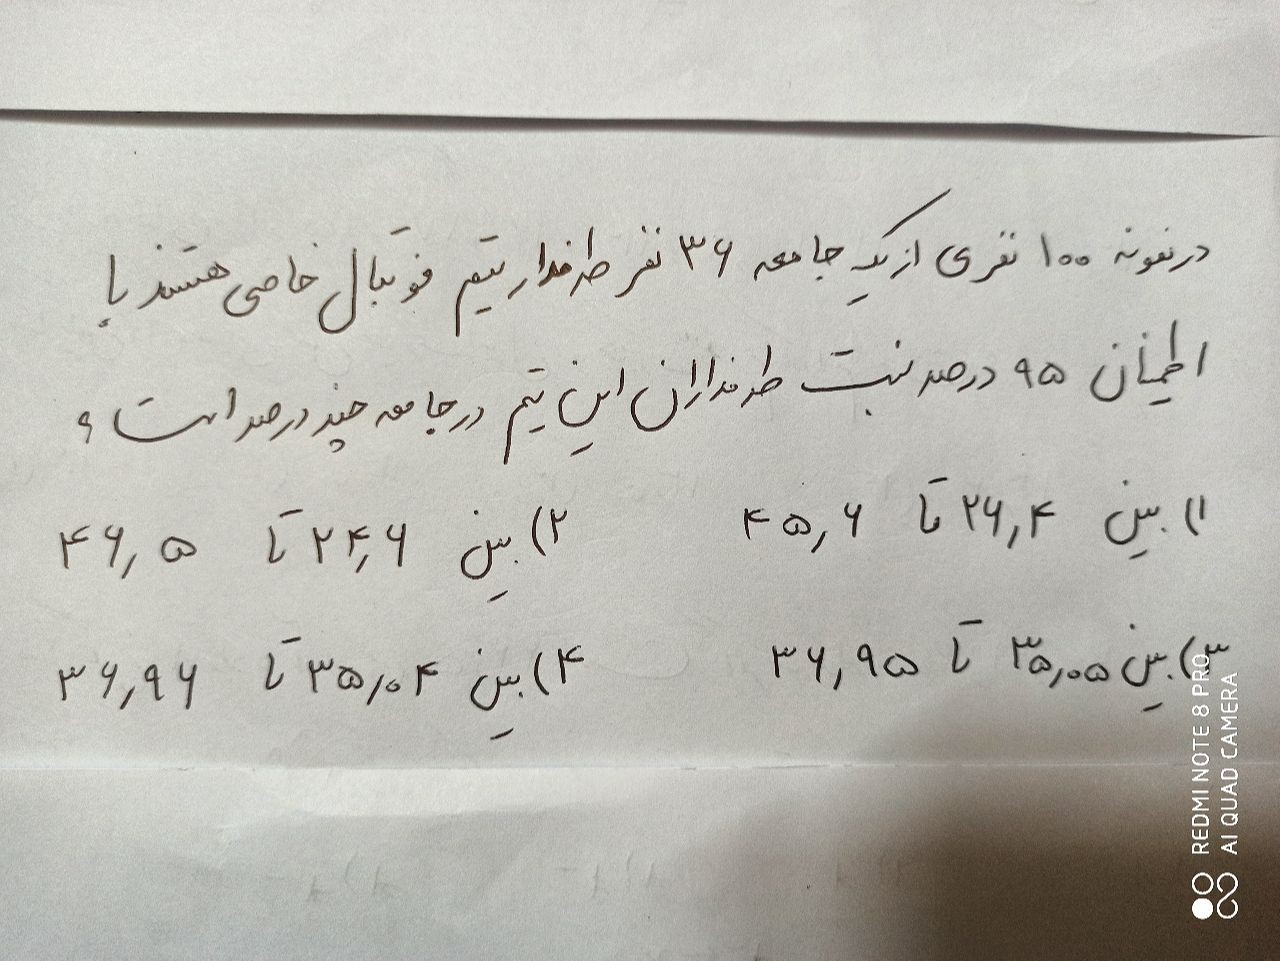 در نمونه ۱۰۰ نفری از یک جامعه ۳۶ نفر طرفدار تیم فوتبال خاصی هستند با
اطمینان ۹۵ درصد نسبت طرفداران این تیم در جامعه چند درصد است؟
۱) بین ۲۶٫۴ تا ۴۵٫۶ ۲) بین ۲۴٫۶ تا ۴۶٫۵
۳) بین ۳۵٫۰۵ تا ۳۶٫۹۵ ۴) بین ۳۵٫۰۴ تا ۳۶٫۹۶
REDMI NOTE 8 PRO
AI QUAD CAMERA